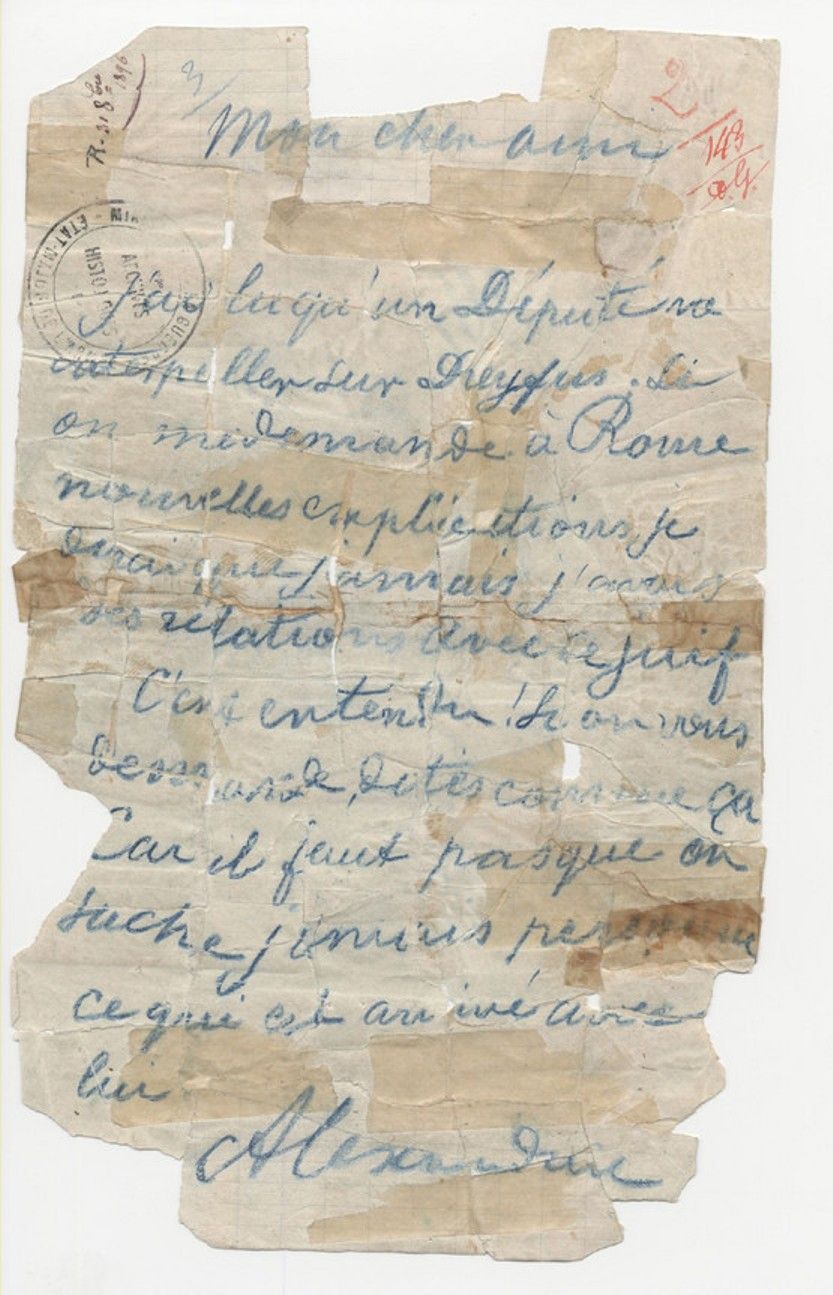 3/
2
143
a.G.
Mon cher ami
j'ai lu qu'un Député va
interpeller sur Dreyfus. Si
on me demande à Rome
nouvelles explications, je
dirai que jamais j'avais
des relations avec ce juif
C'est entendu! Si on vous
demande, dites comme ça
Car il faut pas que on
sache jamais personne
ce qui est arrivé avec
lui
Alexandrine
R. 31 8bre 1896
ÉTAT-MAJOR
HISTO